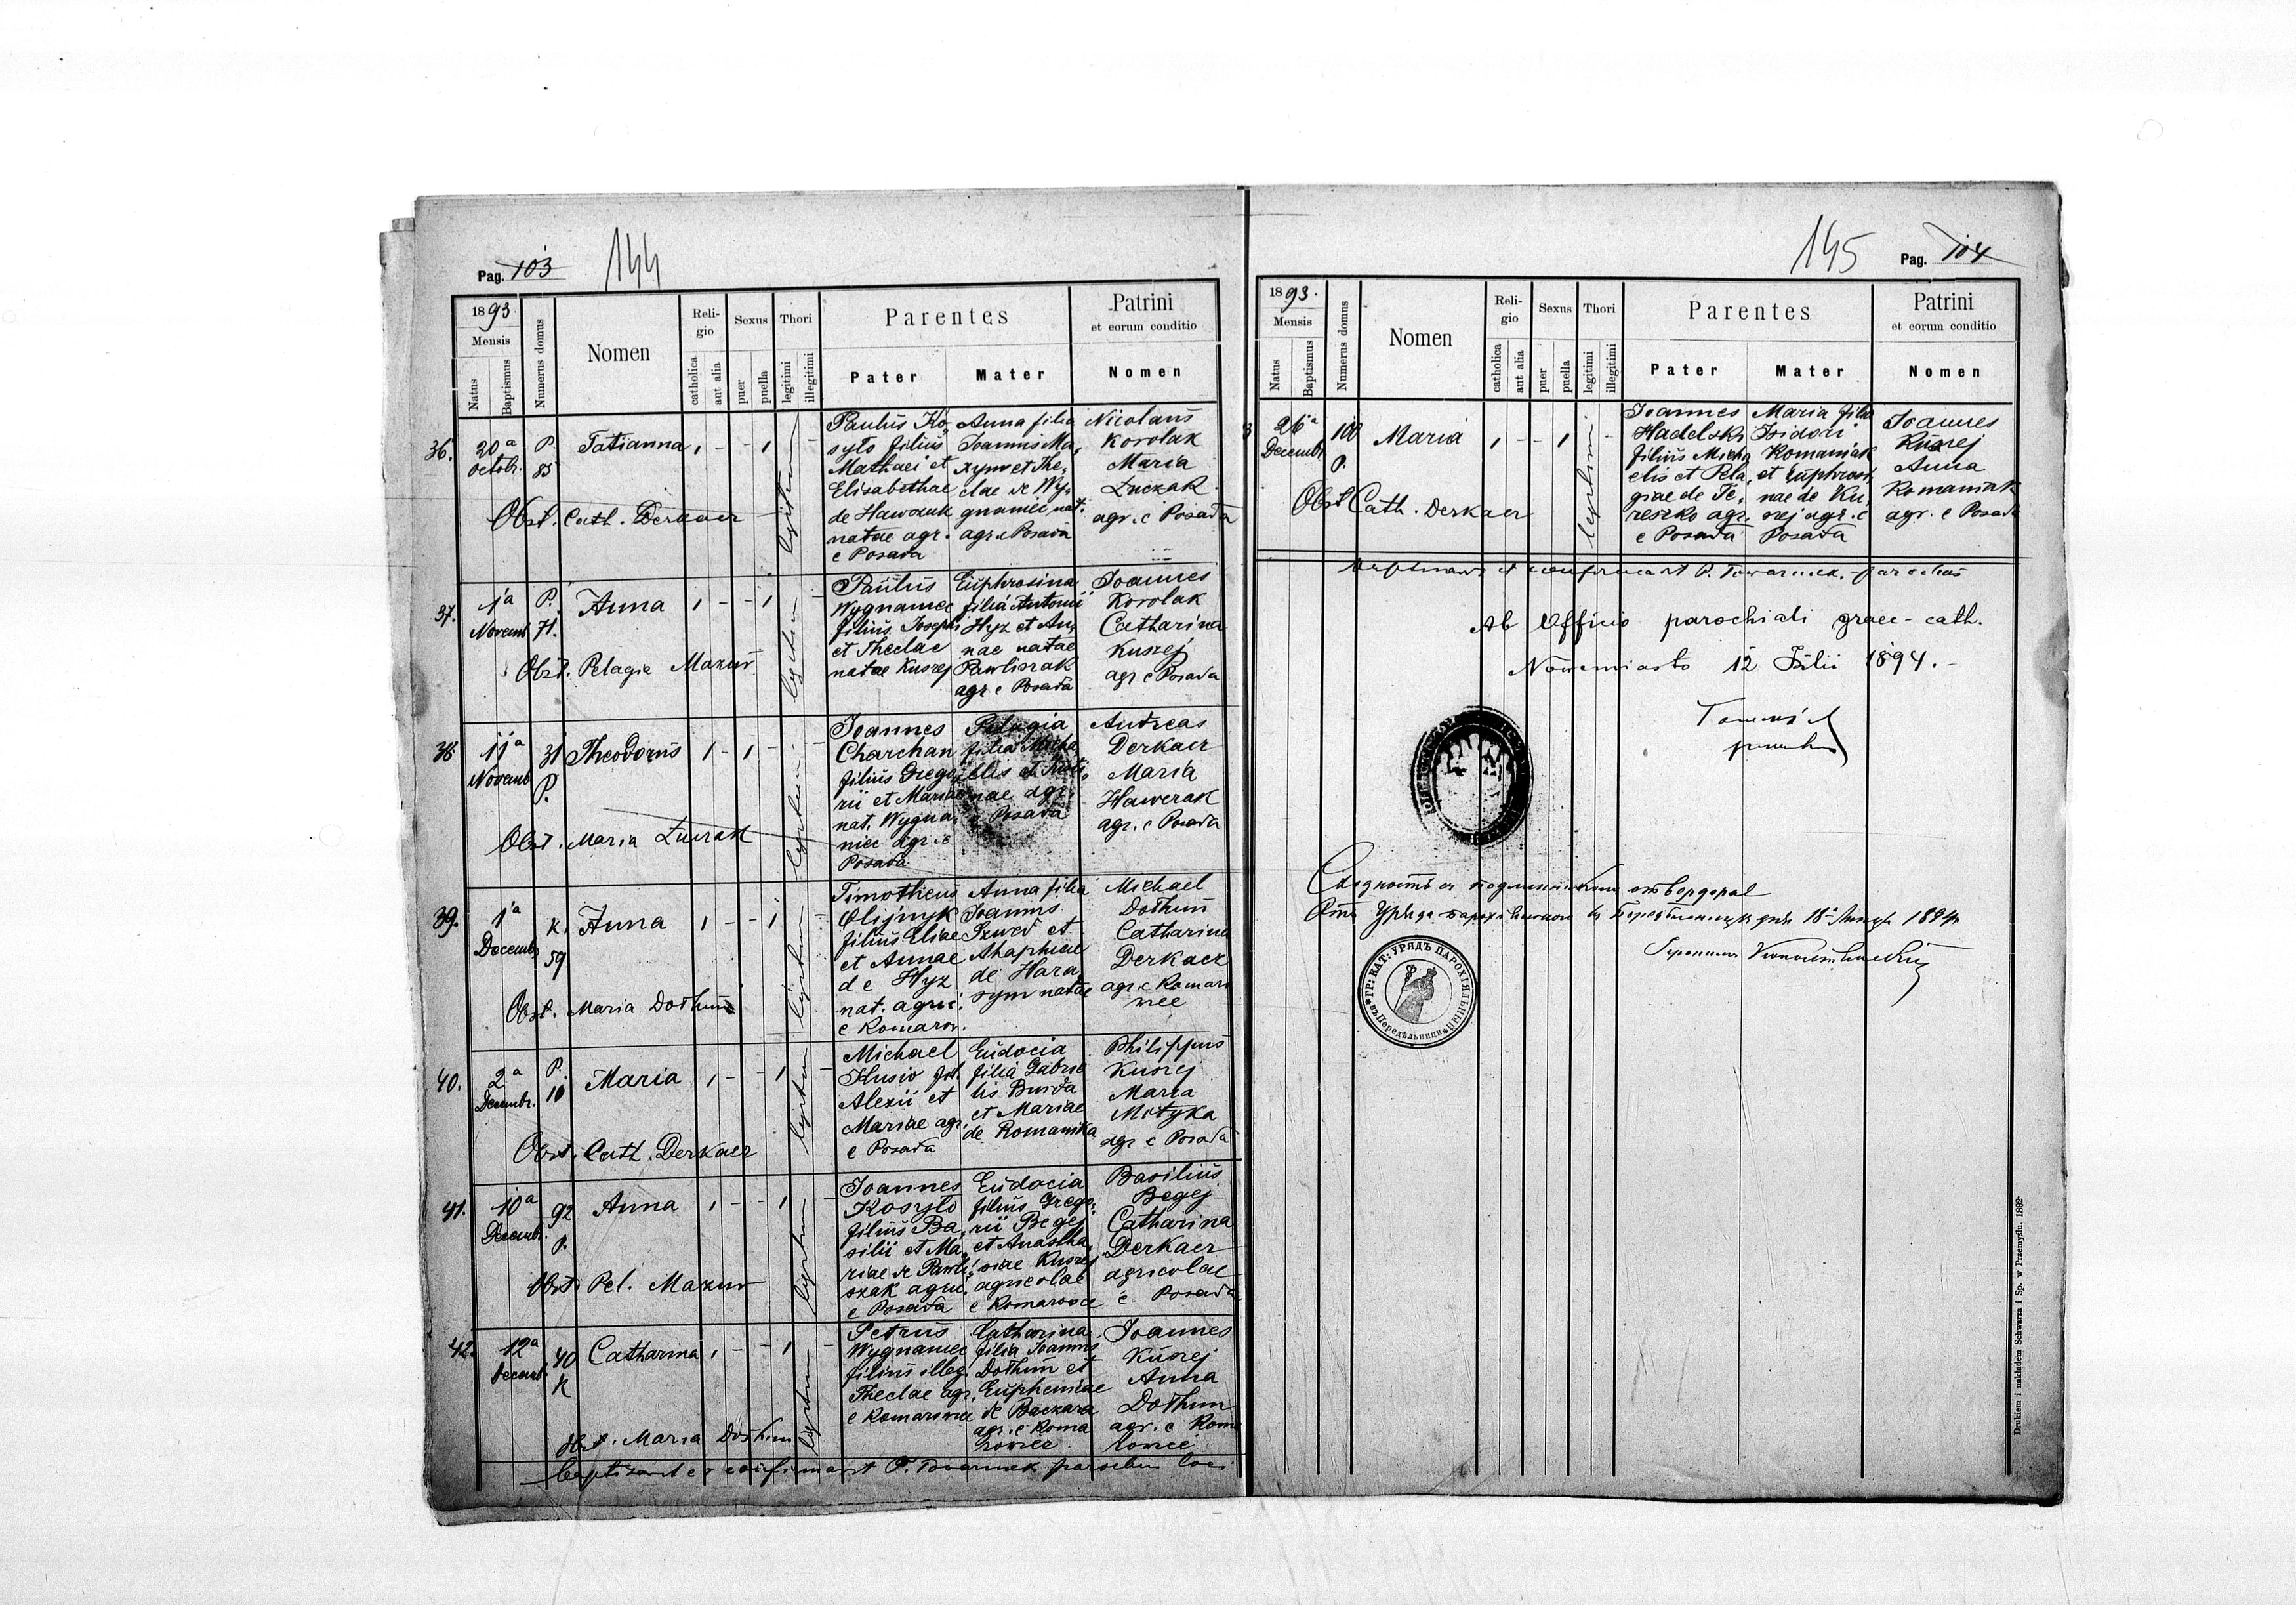 Pag. 103 144
1893.
Mensis
Natus
Baptismus
Numerus domus
Nomen
Reli-
gio
catholica
aut alia
Sexus
puer
puella
Thori
legitimi
illegitimi
Parentes
Pater
Mater
Patrini
et eorum conditio
Nomen
36. 20a Octob. P. 85 Tatianna 1 - - 1 -
Obst. Cath. Derkacz
Paulus Ko-
syło filius
Mathaei et
Elisabethae
de Hawczuk
natae agr.
e Posada
Anna filia
Joannis Ma,
xym et The,
clae de Wy,
gnaniec nat.
agr. e Posada
Nicolaus
Korolak
Maria
Łuczak
agr. e Posada
37. 1a Novemb P. 71. Anna 1 - - 1 -
Obst. Pelagia Mazur
Paulus
Wygnaniec
filius Josephi
et Theclae
natae Kuszej
Euphrosina
filia Antonii
Hyz et An,
nae natae
Pawliszak
agr e Posada
Joannes
Korolak
Catharina
Kuszej
agr e Posada
38 11a Novemb 31 P. Theodorus 1 - 1 - -
Obst. Maria Łuczak
Joannes
Charchan
filius Grego,
rii et Mariae
nat. Wygna,
niec agr. e
Posada
Pelagia
filia Micha
agr.
e Posada
Andreas
Derkacz
Maria
Hawczak
agr. e Posada
39. 1a Decemb K. 59 Anna 1 - - 1 -
Obst. Maria Dothun
Timotheus
Olijnyk
filius Eliae
et Annae
de Hyz
nat. agric.
e Komarow.
Anna filia
Joannis
Szwed et
Ahaphiae
de Hara,
sym natae
Michael
Dothun
Catharina
Derkacz
agr. e Komaro
wce
40. 2a Decembr. P. 10 Maria 1 - - 1 -
Obst. Cath. Derkacz
Michael
Husiw fil.
Alexii et
Mariae agr.
e Posada
Eudocia
filia Gabrie
lis Burda
et Mariae
de Romanika
Philippus
Kuszej
Maria
Motyka
agr e Posada
41. 10a Decemb. 92 P. Anna 1 - - 1 -
Obst. Pel. Mazur
Joannes
Kosyło
filius Ba,
silii et Ma,
riae de Pawli,
szak agric,
e Posada
Eudocia
filius Grego,
rii Begej
et Anastha,
siae Kuszej
agricolae
e Komarowce
Basilius
Begej
Catharina
Derkacz
agricolae
e Posada
42. 12a Decemb. 40 K Catharina 1 - - 1 -
Obst. Maria Dothun
Petrus
Wygnaniec
filius illeg.
Theclae agr.
e Komarowce
Catharina
filia Joannis
Dothun et
Euphemiae
de Baczara
agr. e Koma
rowce
Joannes
Kuszej
Anna
Dothun
agr. e Koma
rowce
baptisavit et confirmavit P. Towarnick parochus loci
145 Pag. 104
1893.
Mensis
Natus
Baptismus
Numerus domus
Nomen
Reli-
gio
catholica
aut alia
Sexus
puer
puella
Thori
legitimi
illegitimi
Parentes
Pater
Mater
Patrini
et eorum conditio
Nomen
26a Decembr 100 P. Maria 1 - - 1 -
Obst Cath. Derkacz
Joannes
Hadelski
filius Micha
elis et Pela,
giae de Te,
reszko agr.
e Posada
Maria filia
Isidori
Romaniak
et Euphrosi
nae de Ku,
szej agr. e
Posada
Joannes
Kuszej
Anna
Romaniak
agr. e Posada
baptisavit et confirmavit P. Towarnick. parochus
Ab Officio parochiali graec-cath.
Nowemiasto 12 Julii 1894.
ГР: КАТ: УРЯДЪ ПАРОХІЯЛЬНЫЙ въ Передѣльници
Drukiem i nakładem Schwarza i Sp. w Przemyślu. 1892